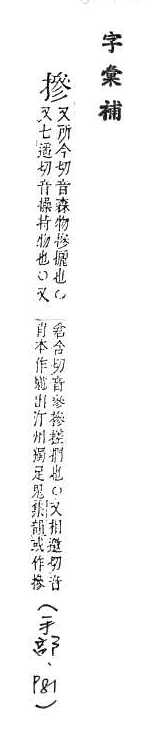 字彙補
摻
又所今切音森物摻攡也〇
又七遥切音操持物也〇又
倉含切音參摻搓捫也〇又相邀切音
肖本作魈出汀州獨足鬼集韻或作摻
(手部、P81)